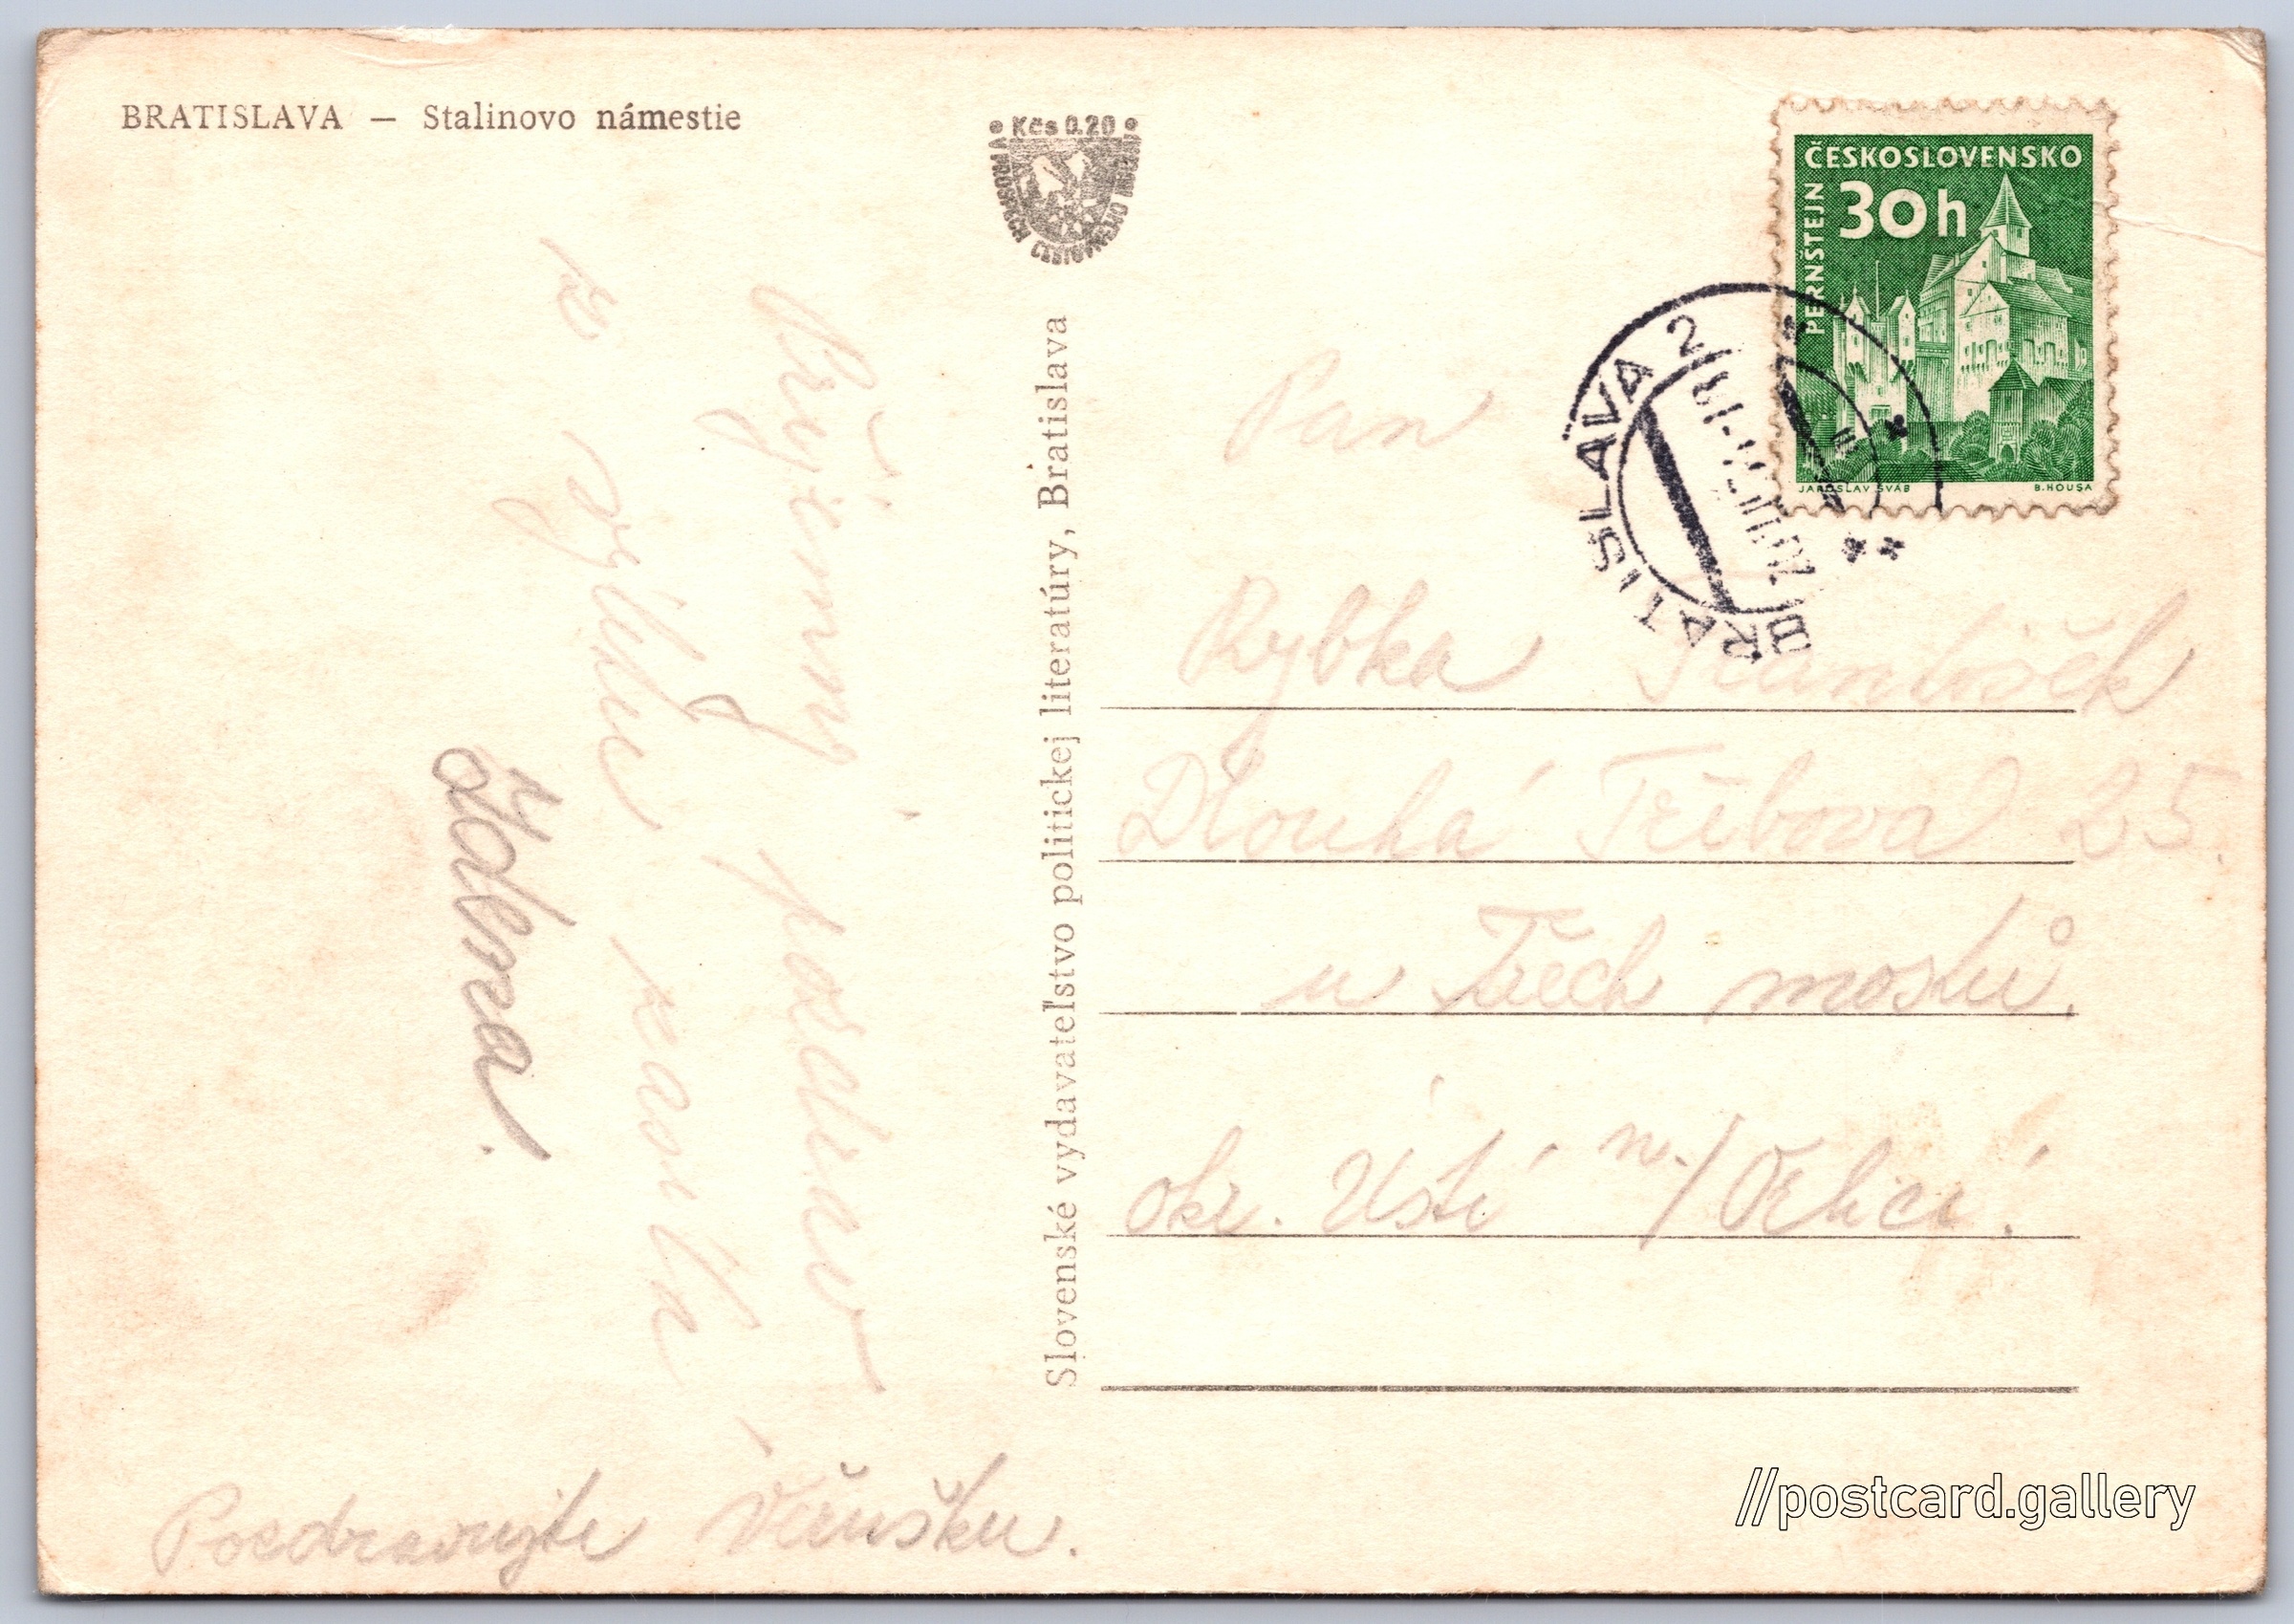 BRATISLAVA — Stalinovo námestie
Kčs 0.20
ČESKOSLOVENSKO
30 h
PERNŠTEJN
JAROSLAV ŠVÁB
B. HOUSA
BRATISLAVA 2
Slovenské vydavateľstvo politickej literatúry, Bratislava
Příjemný pozdrav
z výletu zasílá
Pozdravujte Věrušku.
Pan
Rybka František
Dlouhá Třebová 25.
u Třech mostů.
okr. Ústí n./Orlicí.
//postcard.gallery